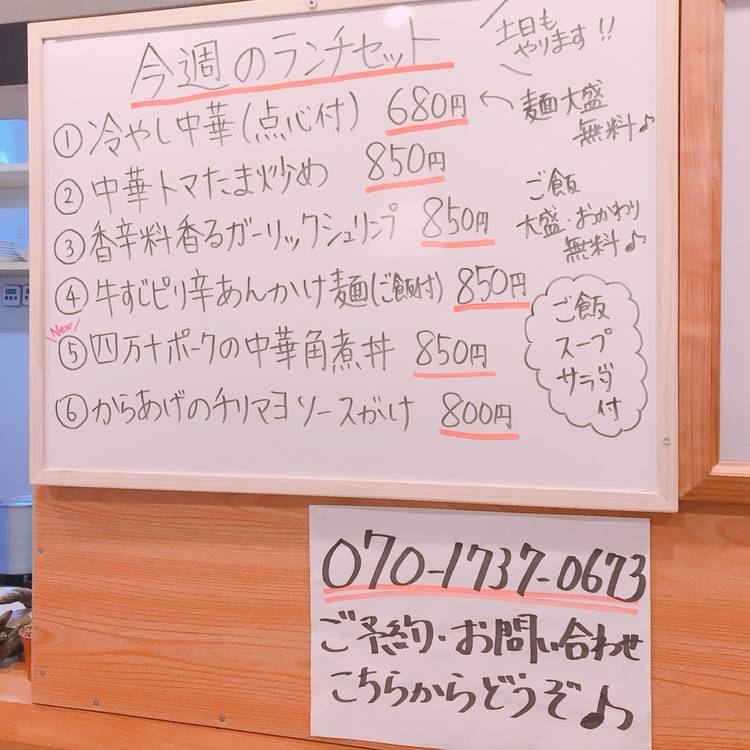 今週のランチセット
土日も
やります!!
① 冷やし中華(点心付) 680円
麺大盛
無料♪
② 中華トマたま炒め 850円
ご飯
大盛・おかわり
無料♪
③ 香辛料香るガーリックシュリンプ 850円
④ 牛すじピリ辛あんかけ麺(ご飯付) 850円
New
⑤ 四万十ポークの中華角煮丼 850円
⑥ からあげのチリマヨソースがけ 800円
ご飯
スープ
サラダ
付
070-1737-0673
ご予約・お問い合わせ
こちらからどうぞ♪